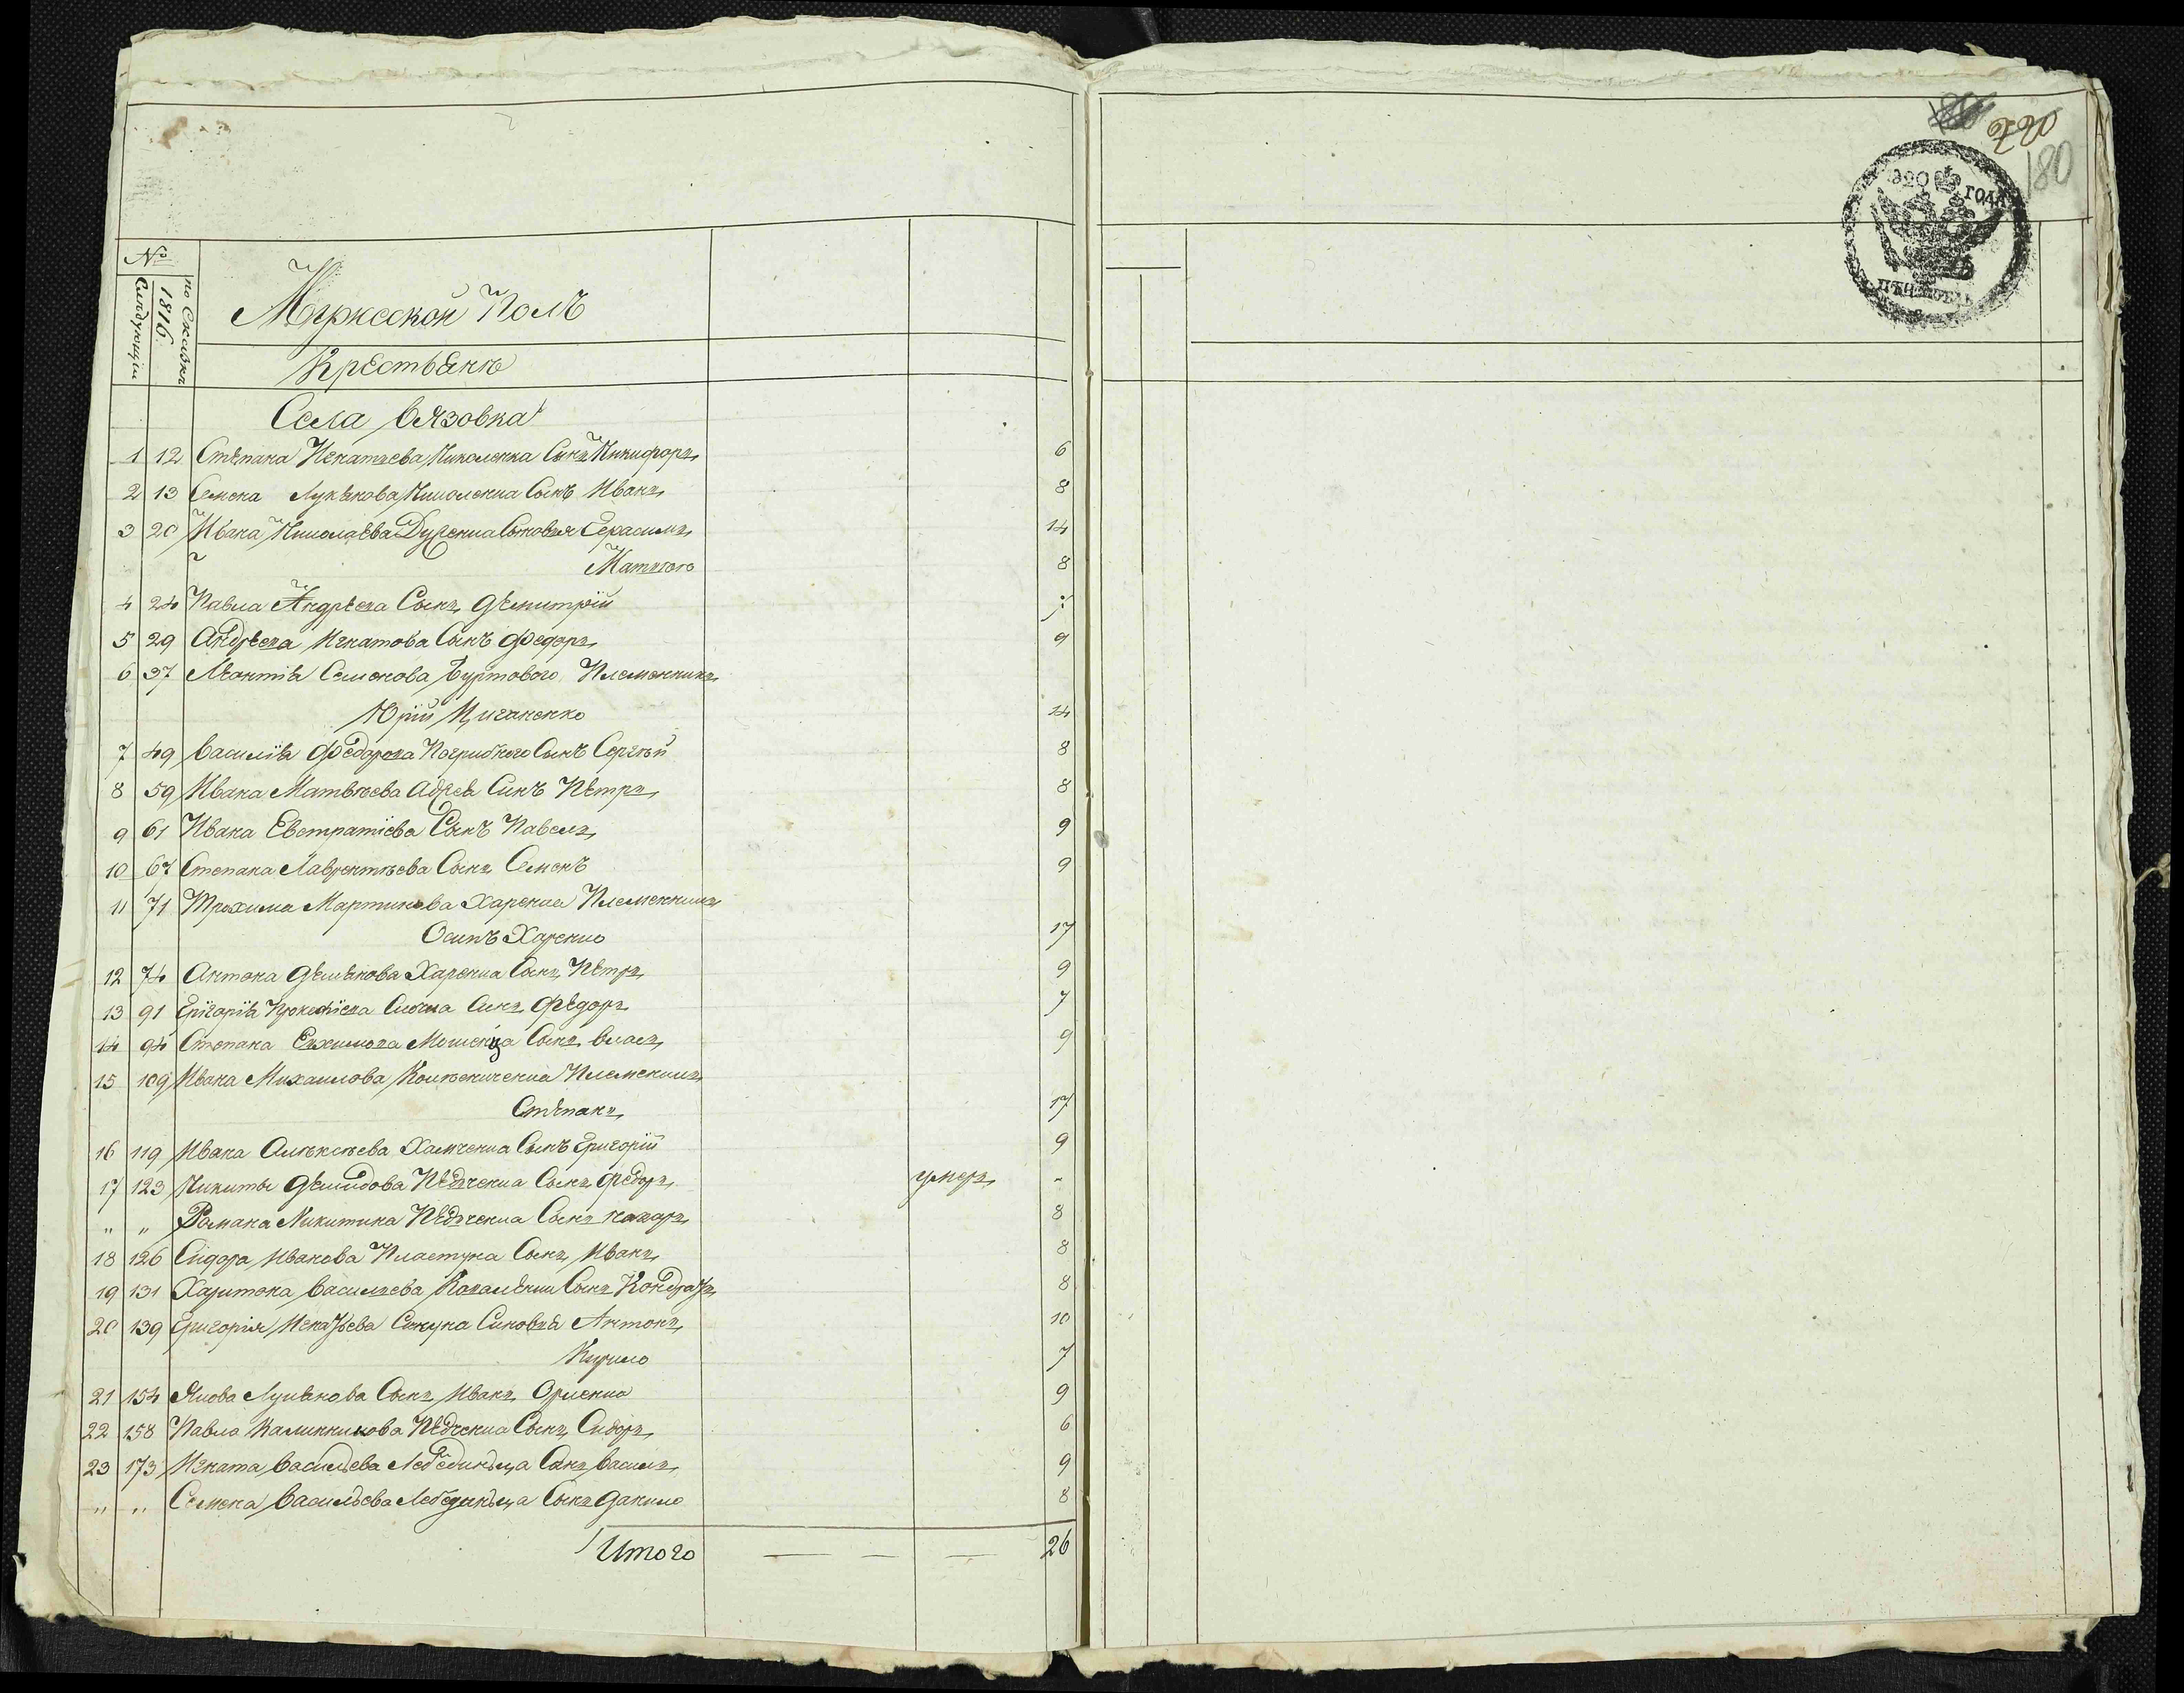 220
180
820 ГОДА
№
Слѣдующіи
по Сказкѣ 1816
Мужескои Полъ
Крестьянъ
Села Вязовка
1 12 Степана Игнатьева Николенка Сынъ Никифоръ 6
2 13 Семена Лукянова Николенка Сынъ Иванъ 8
3 20 Ивана Николаева Сыновья Герасимъ 14
8
4 24 Павла Андреева Сынъ Демитрій 7
5 29 Андреева Игнатова Сынъ Федоръ 9
6 37 Семенова Буртового Племенникъ
Юрій Циганенко 14
7 49 Василія Федорова Погрибного Сынъ Сергѣй 8
8 59 Ивана Матвѣева Сынъ Петръ 8
9 61 Ивана Евстратіева Сынъ Павелъ 9
10 67 Степана Лаврентьева Сынъ Семенъ 9
11 71 Трохима Мартинова Харенка Племенникъ
Осипъ Харенко 17
12 74 Антона Демянова Харенка Сынъ Петръ 9
13 91 Григорія Прокофіева Синъ Федоръ 7
14 94 Степана Сынъ Власъ 9
15 109 Ивана Михаилова Племеникъ
Степанъ 17
16 119 Ивана Алексѣева Хамченка Сынъ Григорій 9
17 123 Никиты Демидова Педченка Сынъ Федоръ умеръ "
" " Романа Никитина Педченка Сынъ назаръ 8
18 126 Сидора Иванова Пластуна Сынъ Иванъ 8
19 131 Харитона Васильева Сынъ Кондратъ 8
20 139 Григорія Игнатьева Синовья Антонъ 10
Кирило 7
21 154 Якова Лукянова Сынъ Иванъ 9
22 158 Павла Калинникова Педченка Сынъ Сидоръ 6
23 173 Игната Васильева Лебединъца Синъ Василъ 9
" " Семена Васильева Лебединъца Сынъ Данило 8
Итого — — — 26